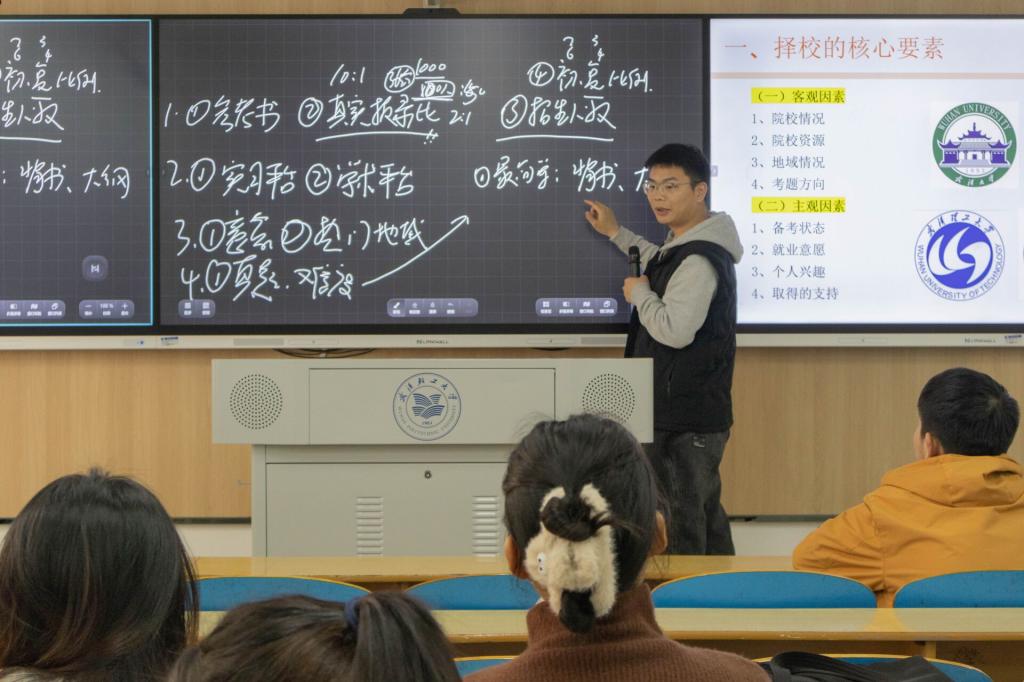 初、复比例.
招生人数
: 将书、大纲
10:1
1000
④初、复比例.
1.①参考书 ②真实报录比 2:1 ③招生人数
2.①实习平台 ②学术平台
3.①意会 ②热门地域
4.①真题.难度
一、择校的核心要素
（一）客观因素
1、院校情况
2、院校资源
3、地域情况
4、考题方向
（二）主观因素
1、备考状态
2、就业意愿
3、个人兴趣
4、取得的支持
WUHAN UNIVERSITY
1893
武汉大学
武汉理工大学
WUHAN UNIVERSITY OF TECHNOLOGY
武汉轻工大学
WUHAN POLYTECHNIC UNIVERSITY
1951